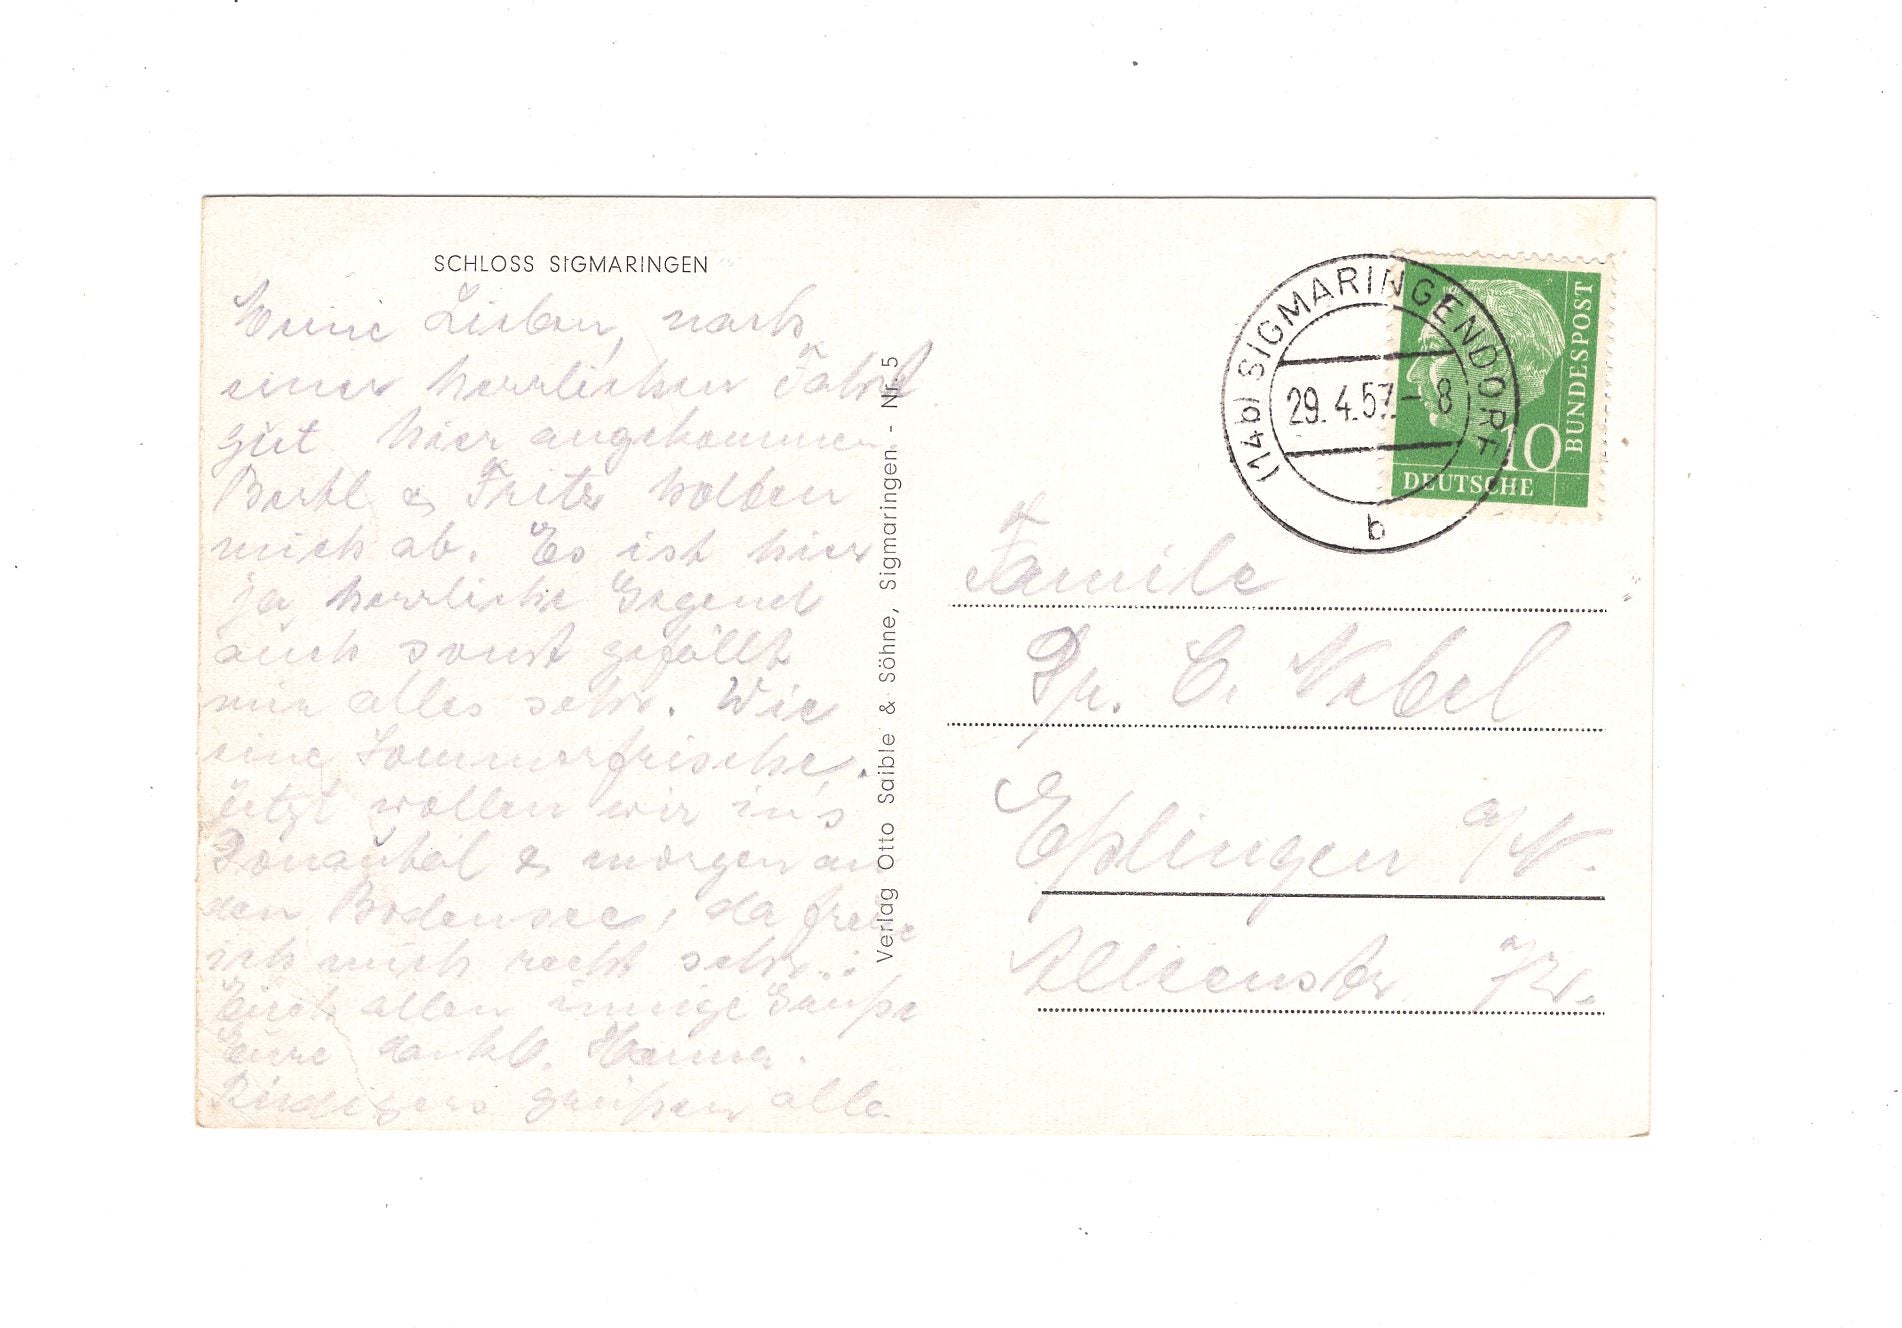 SCHLOSS SIGMARINGEN
Meine Lieben, nach
einer herrlichen Fahrt
gut hier angekommen.
Bertl & Fritz holten
mich ab. Es ist hier
ja herrliche Gegend
auch sonst gefällt
mir alles sehr. Wie
eine Sommerfrische.
Jetzt wollen wir in's
Donautal & morgen an
den Bodensee, da freue
ich mich recht sehr..
Euch allen innige Grüße
Eure dankb. Hanna.
grüßen alle
Verlag Otto Saible & Söhne, Sigmaringen. - Nr. 5
(14b) SIGMARINGENDORF
29.4.57.-8
b
DEUTSCHE
BUNDESPOST
10
Familie
Dr. C. Nabel
Eßlingen a/N.